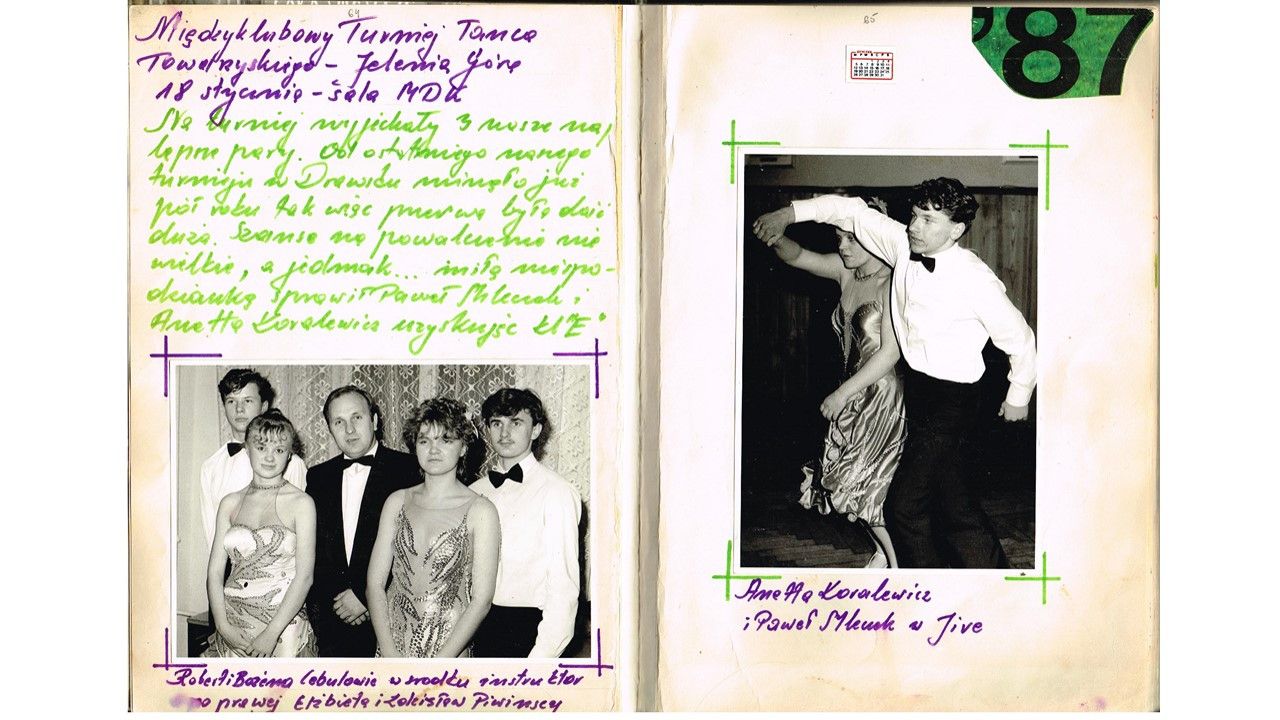 64
Międzyklubowy Turniej Tańca
Towarzyskiego - Jelenia Góra
18 stycznia - sala MDK
Na turniej wyjechały 3 nasze naj
lepsze pary. Od ostatniego naszego
turnieju w Drawsku minęło już
pół roku tak więc przerwa była dość
duża. Szanse na powalczenie nie
wielkie, a jednak... miłą niespo-
dziankę sprawił Paweł i
Anetta Kovalewicz uzyskując kl "E"
Robert i Bożena Cebulowie w środku instruktor
po prawej Elżbieta i Piwińscy
65
'87
Anetta Kovalewicz
i Paweł w Jive